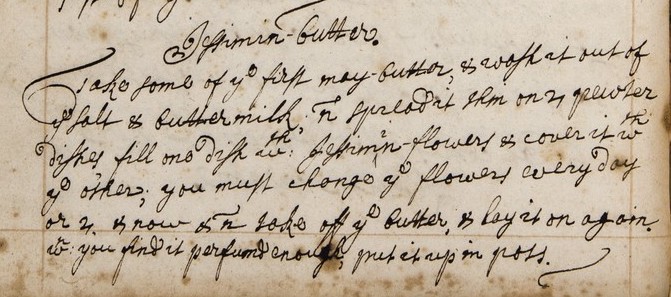 Jessimin-butter.
Take some of yᵉ first may-butter, & wash it out of
yᵉ salt & buttermilk, yⁿ spread it thin on 2 pewter
dishes, fill one dish wᵗʰ: Jessimin-flowers & cover it wᵗʰ
yᵉ other; you must change yᵉ flowers every day
or 2, & now & yⁿ take off yᵉ butter, & lay it on again.
wⁿ: you find it perfumd enough, put it up in pots.